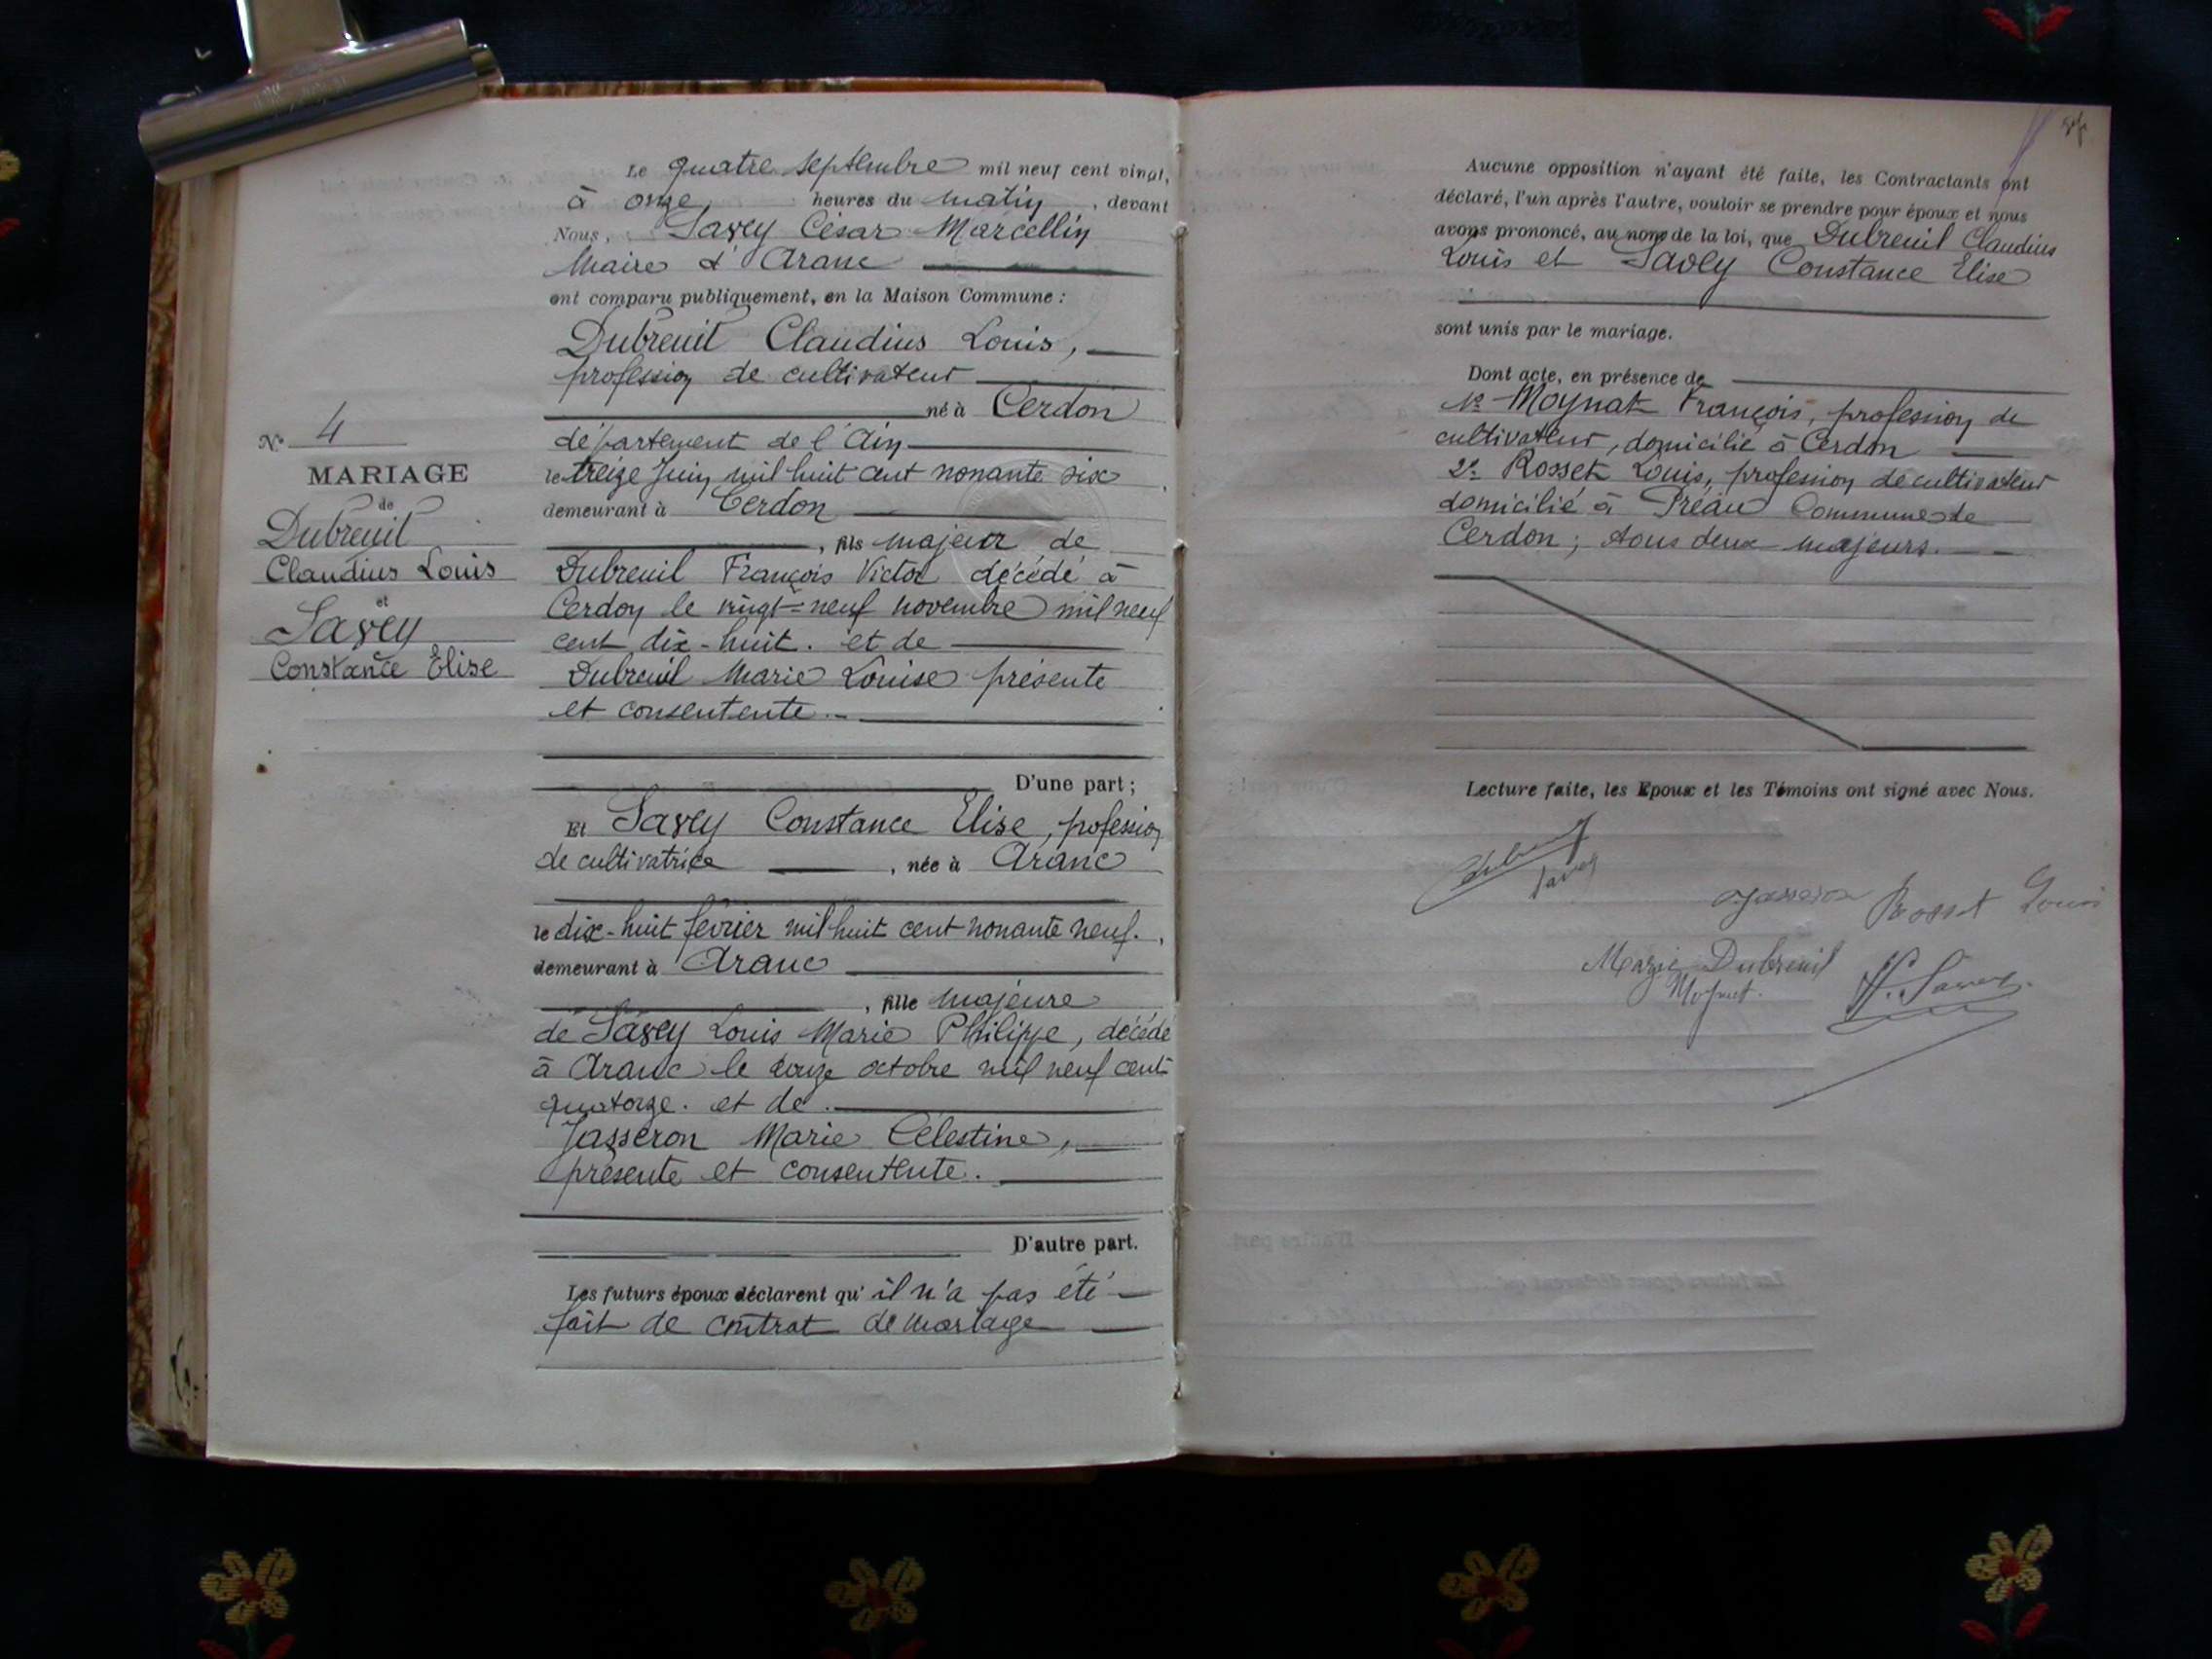 Le quatre septembre mil neuf cent vingt,
à onze heures du matin, devant
Nous, Savey César Marcellin
Maire d'Aranc
ont comparu publiquement, en la Maison Commune :
Dubreuil Claudius Louis,
profession de cultivateur
né à Cerdon
département de l'Ain
le treize Juin mil huit cent nonante six
demeurant à Cerdon
, fils majeur de
Dubreuil François Victor décédé à
Cerdon le vingt-neuf novembre mil neuf
cent dix-huit. et de
Dubreuil Marie Louise présente
et consentente.
D'une part ;
Et Savey Constance Elise, profession
de cultivatrice, née à Aranc
le dix-huit février mil huit cent nonante neuf.,
demeurant à Aranc
, fille majeure
de Savey Louis Marie Philippe, décédé
à Aranc le douze octobre mil neuf cent
quatorze. et de.
Jasseron Marie Célestine,
présente et consentente.
D'autre part.
Les futurs époux déclarent qu'il n'a pas été
fait de contrat de mariage
N° 4
MARIAGE
de
Dubreuil
Claudius Louis
et
Savey
Constance Elise
Aucune opposition n'ayant été faite, les Contractants ont
déclaré, l'un après l'autre, vouloir se prendre pour époux et nous
avons prononcé, au nom de la loi, que Dubreuil Claudius
Louis et Savey Constance Elise
sont unis par le mariage.
Dont acte, en présence de
1° Moynat François, profession de
cultivateur, domicilié à Cerdon
2° Rosset Louis, profession de cultivateur
domicilié à Préau Commune de
Cerdon ; tous deux majeurs.
Lecture faite, les Epoux et les Témoins ont signé avec Nous.
Savey
Jasseron
Rosset Louis
Marie Dubreuil
Moynat.
Savey